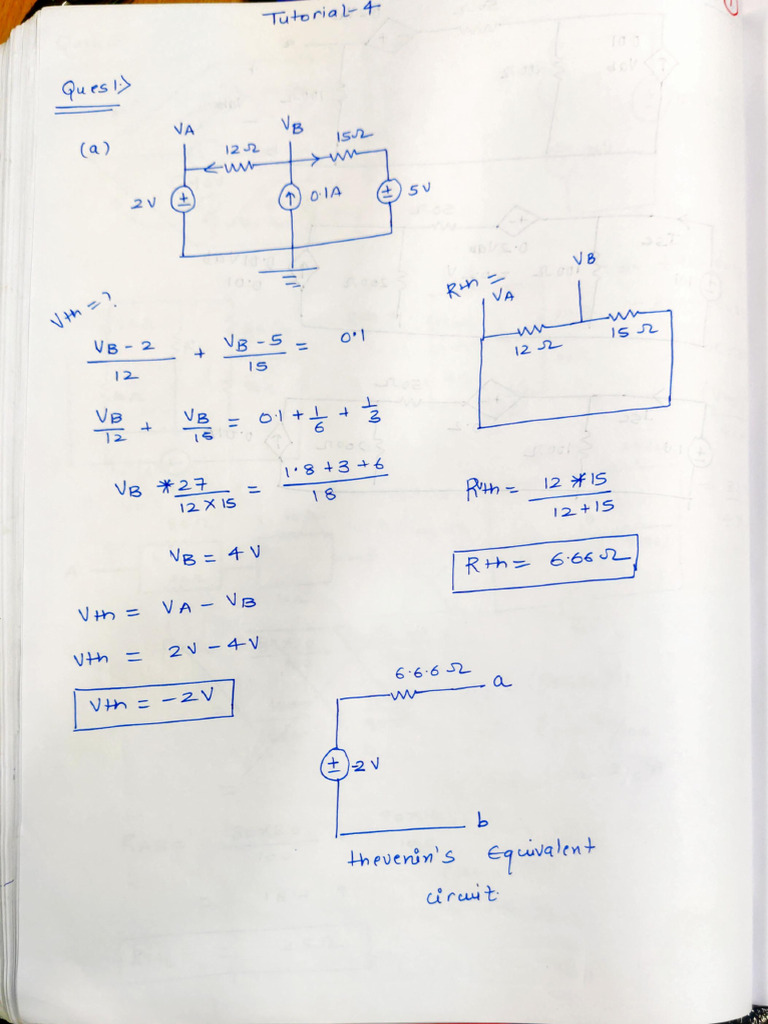 Tutorial-4
Ques1:>
(a)
VA
VB
12Ω
15Ω
2V
0.1A
5V
Vth = ?
VB-2/12 + VB-5/15 = 0.1
VB/12 + VB/15 = 0.1 + 1/6 + 1/3
VB * 27/12×15 = 1.8+3+6/18
VB = 4V
Vth = VA - VB
Vth = 2V - 4V
Vth = -2V
Rth =
VA
VB
12Ω
15Ω
Rth = 12*15/12+15
Rth = 6.66Ω
6.6.6Ω
a
-2V
b
thevenin's Equivalent
circuit.